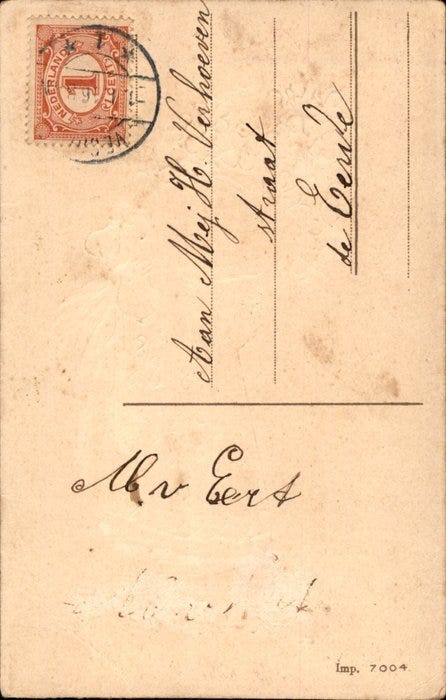 NEDERLAND
1
CENT
Aan Mej H. Verhoeven
straat
de Eerste
M v Eert
Imp. 7004